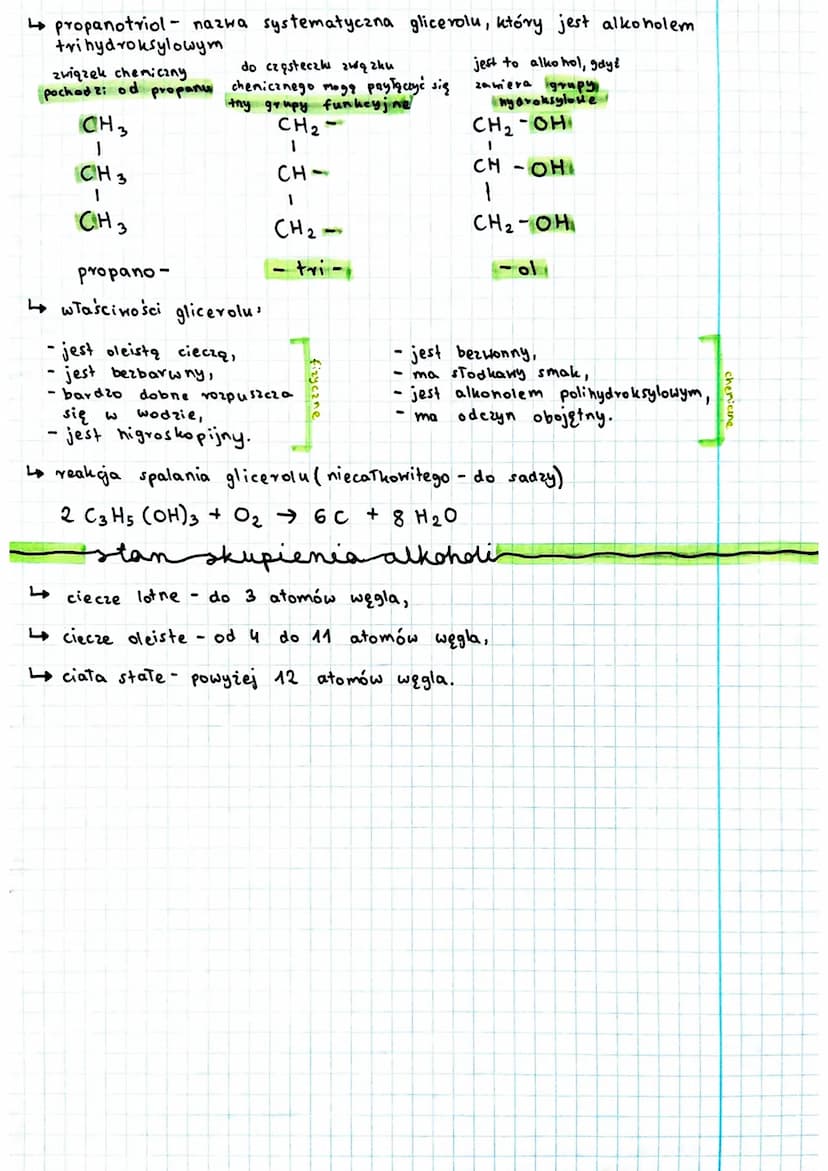 ↳ propanotriol - nazwa systematyczna glicerolu, który jest alkoholem
trihydroksylowym
związek chemiczny
pochodzi od propanu
do cząsteczki związku
chemicznego mogą przyłączyć się
trzy grupy funkcyjne
jest to alkohol, gdyż
zawiera grupy
hydroksylowe
CH₃
|
CH₃
|
CH₃
propano-
CH₂-
|
CH-
|
CH₂-
- tri -
CH₂-OH
|
CH -OH
|
CH₂-OH
-ol
↳ właściwości glicerolu:
- jest oleistą cieczą,
- jest bezbarwny,
- bardzo dobrze rozpuszcza
się w wodzie,
- jest higroskopijny.
fizyczne
- jest bezwonny,
- ma słodkawy smak,
- jest alkoholem polihydroksylowym,
- ma odczyn obojętny.
chemiczne
↳ reakcja spalania glicerolu (niecałkowitego - do sadzy)
2 C₃H₅(OH)₃ + O₂ → 6C + 8H₂O
stan skupienia alkoholi
↳ ciecze lotne - do 3 atomów węgla,
↳ ciecze oleiste - od 4 do 11 atomów węgla,
↳ ciała stałe - powyżej 12 atomów węgla.